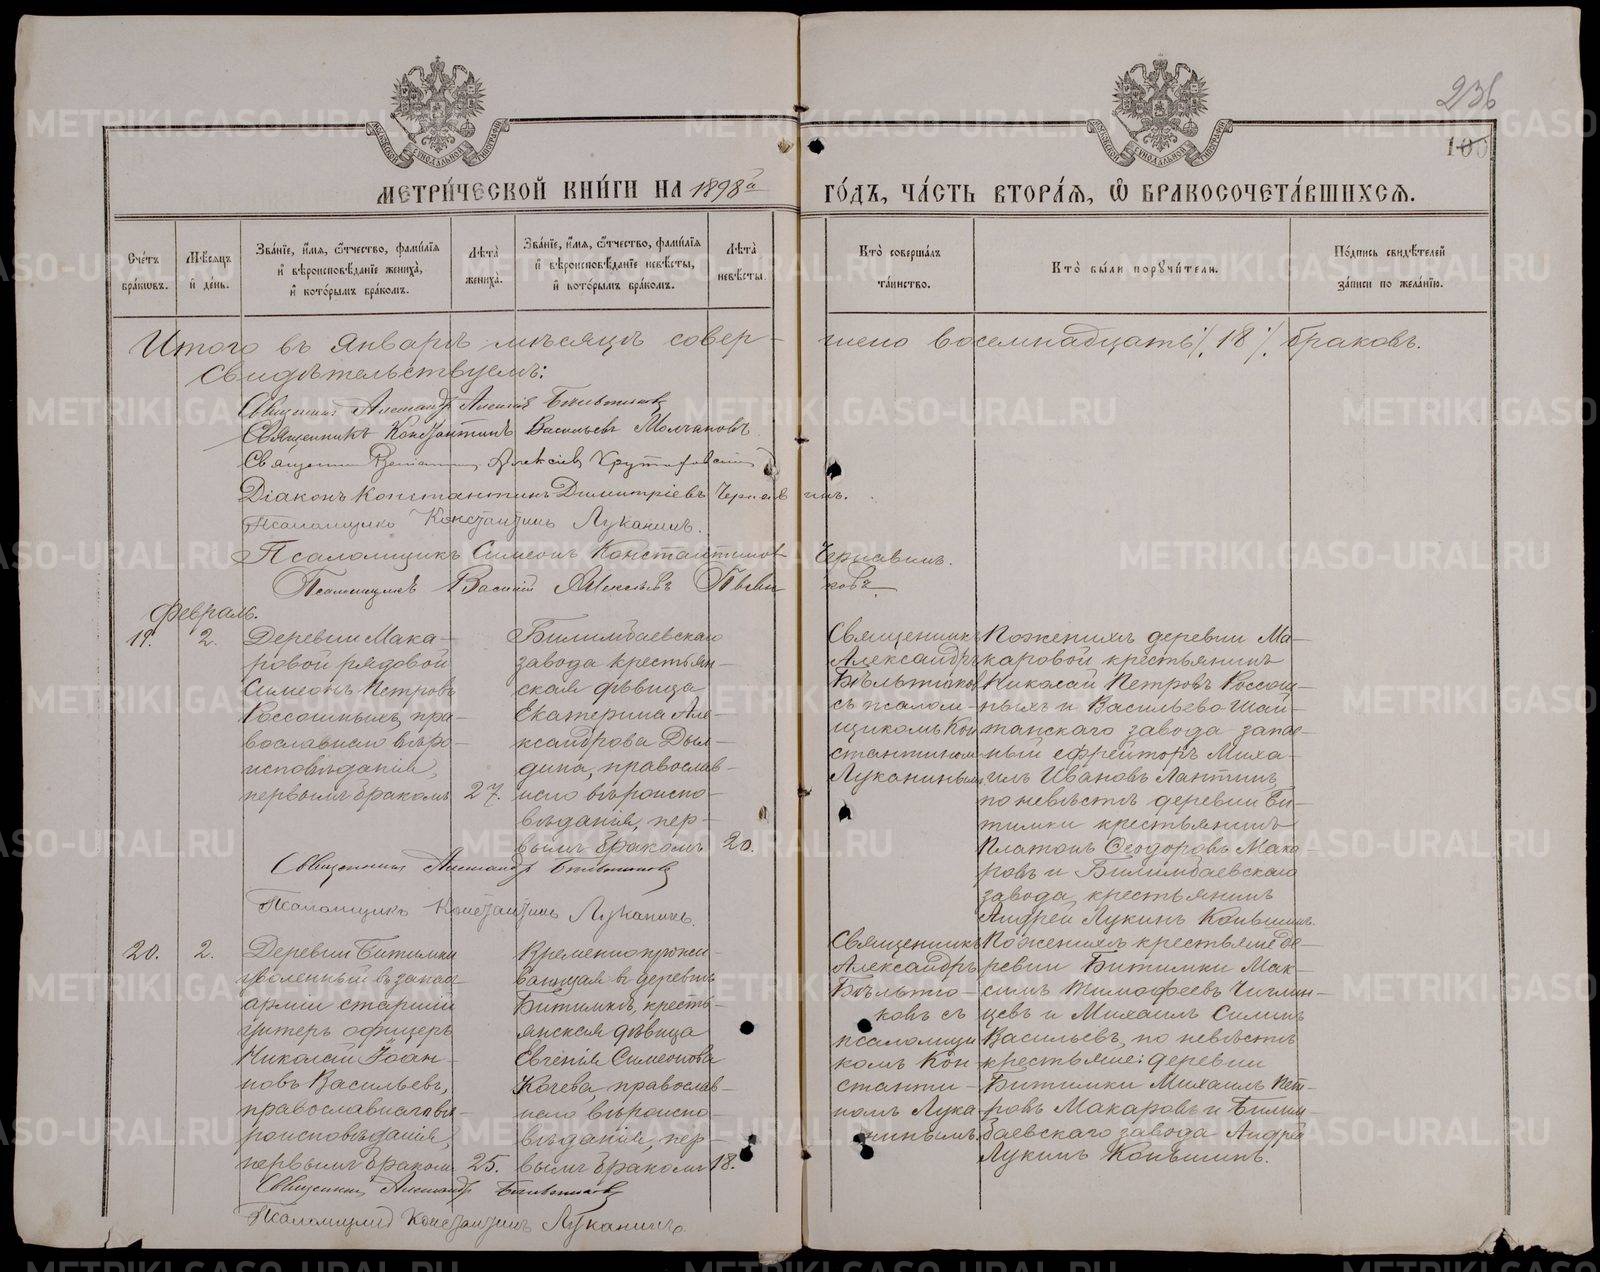 236
100
МЕТРИ́ЧЕСКОЙ КНИ́ГИ НА 1898й ГО́ДЪ, ЧА́СТЬ ВТОРА́Я, Ѽ БРАКОСОЧЕТА́ВШИХСЯ.
Сче́тъ бра́ковъ.
Мѣ́сяцъ и́ де́нь.
Зва́нїе, и́мя, ѻ́тчество, фами́лїя и́ вѣроисповѣ́данїе жениха̀, и́ кото́рымъ бра́комъ.
Лѣ́та жениха̀.
Зва́нїе, и́мя, ѻ́тчество, фами́лїя и́ вѣроисповѣ́данїе невѣ́сты, и́ кото́рымъ бра́комъ.
Лѣ́та невѣ́сты.
Кто̀ соверша́лъ та́инство.
Кто̀ бы́ли порꙋчи́тели.
По́дпись свидѣ́телей за́писи по жела́нїю.
Итого въ Январѣ мѣсяцѣ совер-
шено восемнадцать ⁒ 18 ⁒ браковъ.
Свидѣтельствуемъ:
Священникъ Александръ Алексѣевъ Бѣльтюковъ
Священникъ Константинъ Васильевъ Молчановъ
Священникъ Алексіевъ
Діаконъ Константинъ Димитріевъ Чернавинъ.
Псаломщикъ Константинъ Луканинъ.
Псаломщикъ Симеонъ Константиновъ Чернавинъ.
Псаломщикъ Василій Алексѣевъ
Февраль.
19.
2.
Деревни Мака-
ровой рядовой
Симеонъ Петровъ
Россошныхъ, пра-
вославнаго вѣро-
исповѣданія,
первымъ бракомъ
27.
Билимбаевскаго
завода крестьян-
ская дѣвица
Екатерина Але-
ксандрова Дыл-
дина, православ-
наго вѣроиспо-
вѣданія, пер-
вымъ бракомъ
20.
Священникъ
Александръ
Бѣльтюковъ
съ псалом-
щикомъ Кон
стантиномъ
Луканинымъ
По женихѣ деревни Ма-
каровой крестьянинъ
Николай Петровъ Россош-
ныхъ и Васильево-Шай-
танскаго завода запас-
ный ефрейторъ Миха-
илъ Ивановъ Лаптинъ,
по невѣстѣ деревни Би-
тимки крестьянинъ
Платонъ Ѳеодоровъ Мака
ровъ и Билимбаевскаго
завода крестьянинъ
Андрей Лукинъ Коньшинъ.
Священникъ Александръ Бѣльтюковъ
Псаломщикъ Константинъ Луканинъ.
20.
2.
Деревни Битимки
уволенный въ запас
арміи старшій
унтеръ офицеръ
Николай Іоан-
новъ Васильевъ,
православнаго вѣ-
роисповѣданія,
первымъ бракомъ
25.
Временно прожи-
вающая въ деревнѣ
Битимкѣ, кресть-
янская дѣвица
Евгенія Симеонова
Кочева, православ-
наго вѣроиспо-
вѣданія, пер-
вымъ бракомъ
18.
Священникъ
Александръ
Бѣльтю-
ковъ съ
псаломщи
комъ Кон
станти-
номъ Лука
нинымъ.
По женихѣ крестьяне де-
ревни Битимки Мак-
симъ Тимофеевъ Чиглин-
цевъ и Михаилъ Силинъ
Васильевъ, по невѣстѣ
крестьяне: деревни
Битимки Михаилъ Пет-
ровъ Макаровъ и Билим-
баевскаго завода Андрей
Лукинъ Коньшинъ.
Священникъ Александръ Бѣльтюковъ
Псаломщикъ Константинъ Луканинъ.